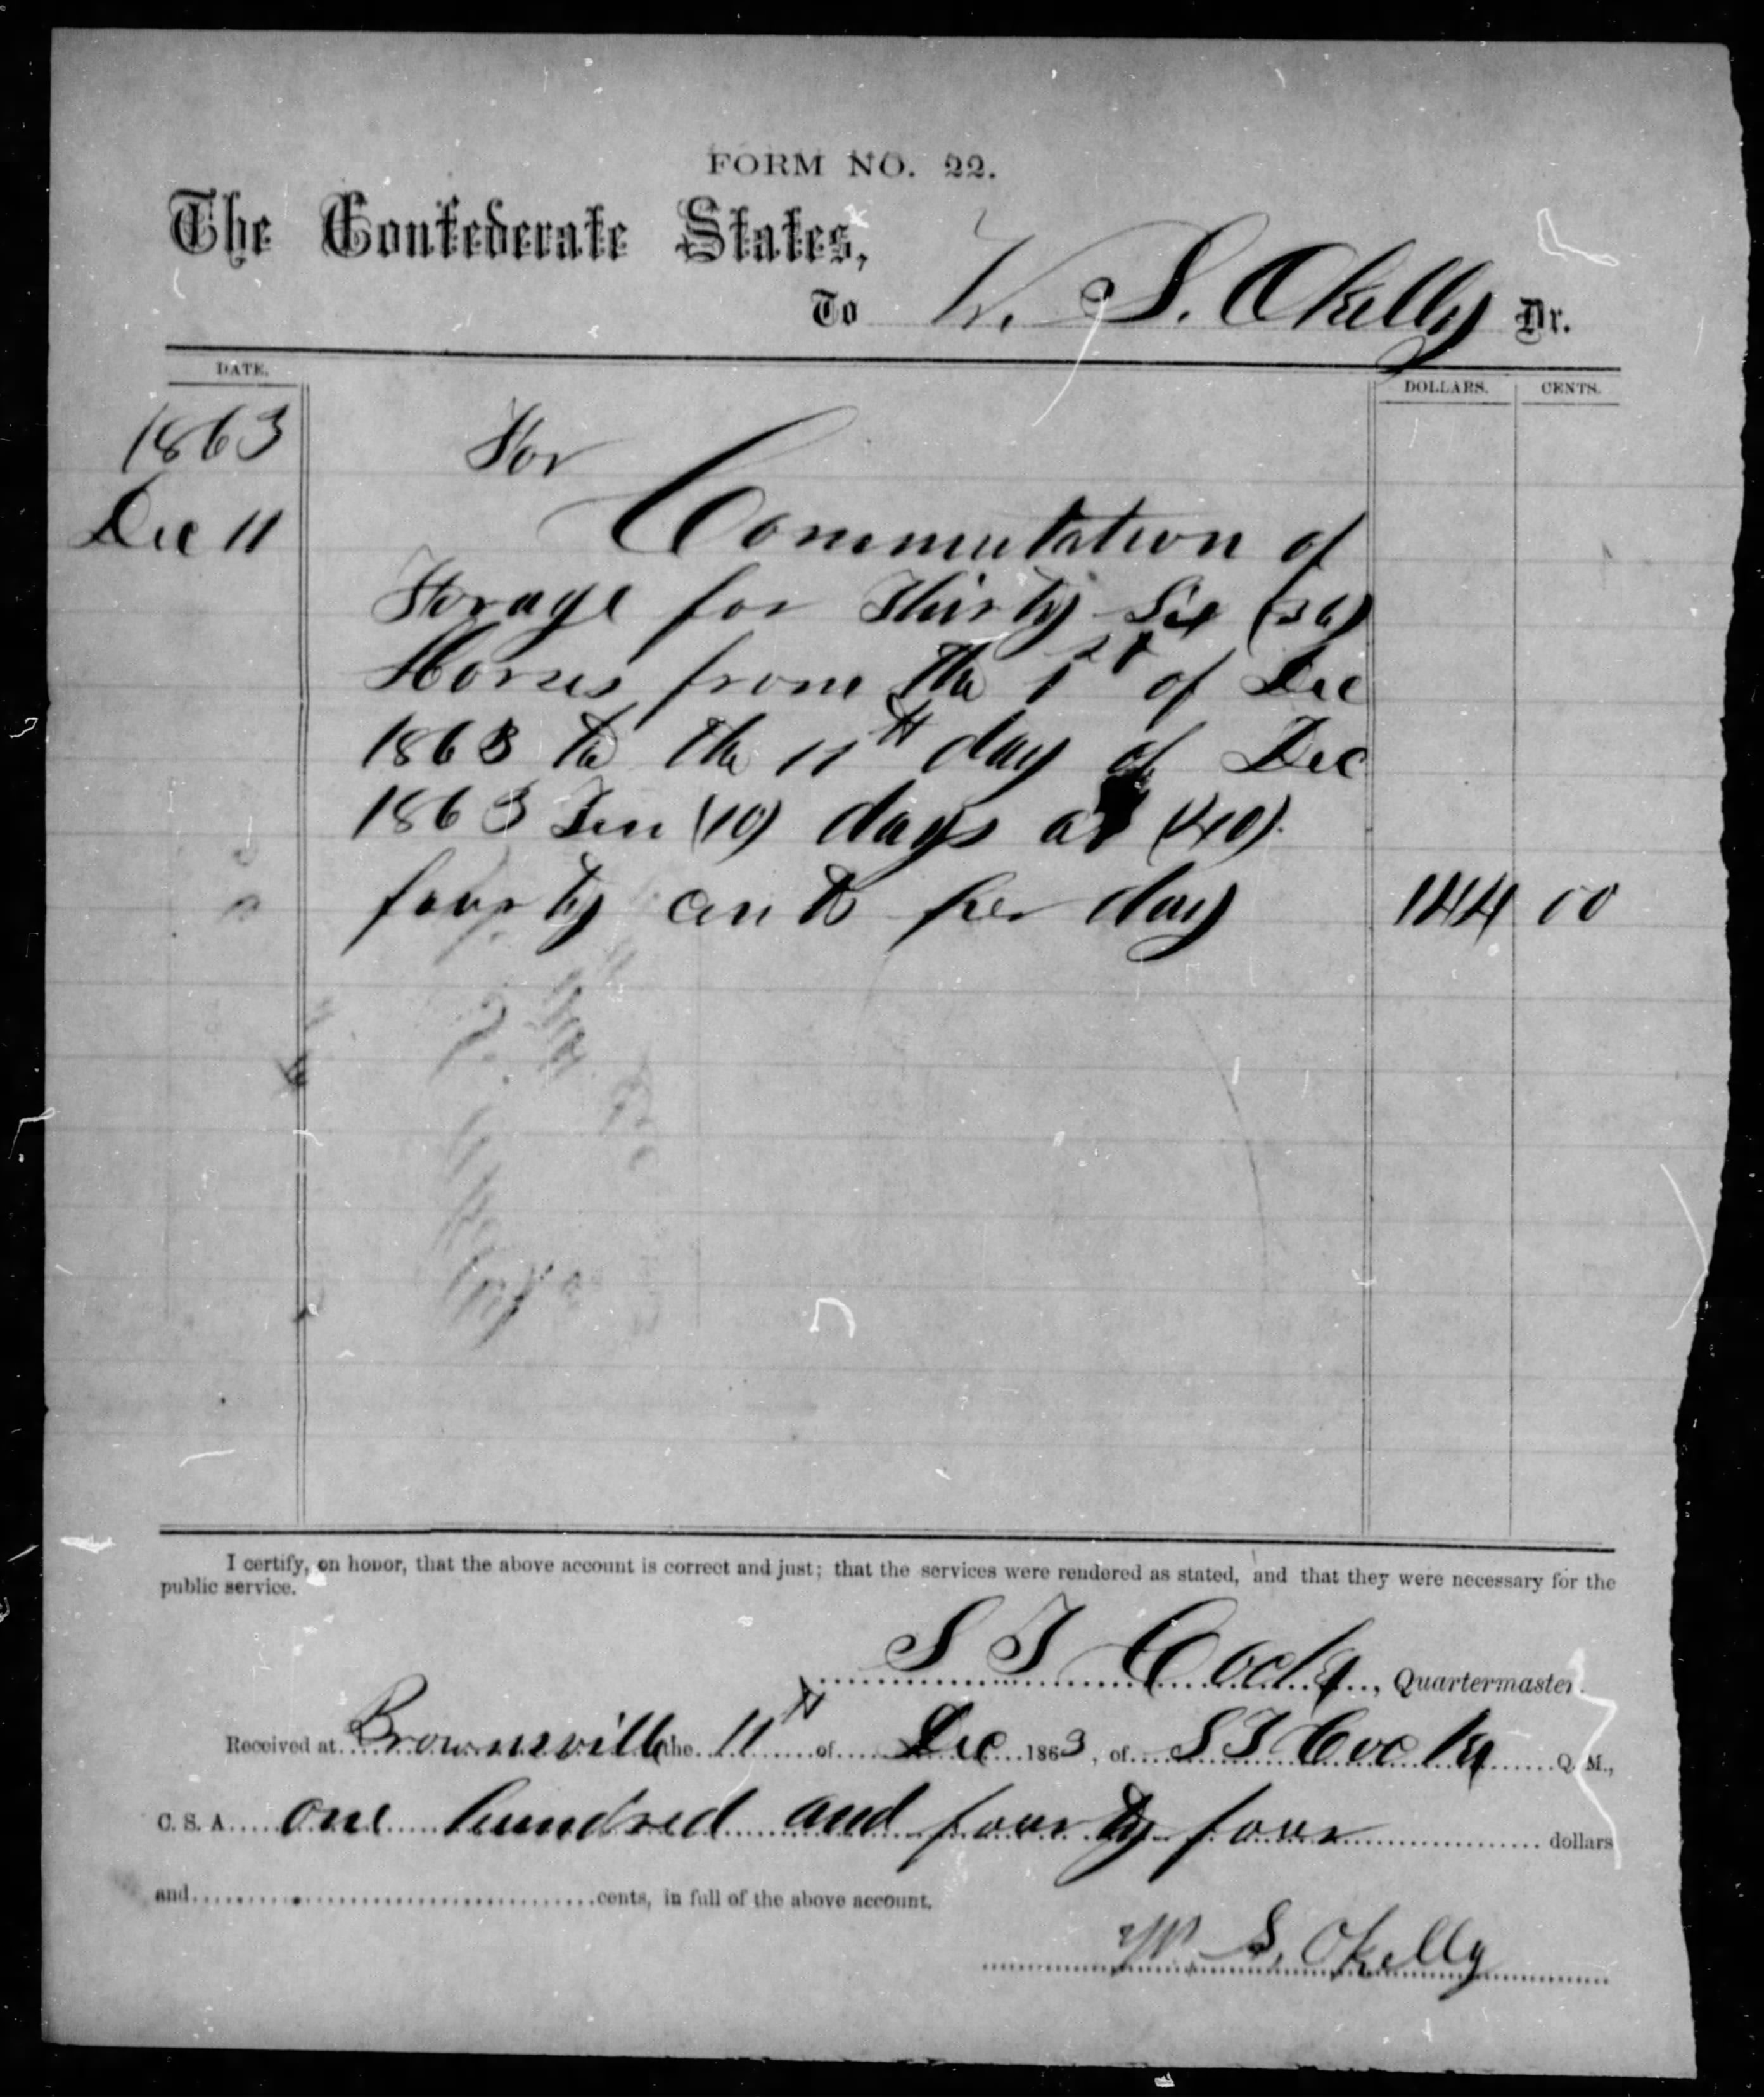 FORM NO. 22.
The Confederate States,
To W. S. OKelly Dr.
DATE. DOLLARS. CENTS.
1863 For
Dec 11 Commutation of
Forage for Thirty Six (36)
Horses from the 1st of Dec
1863 to the 11th day of Dec
1863 Ten (10) days at (40)
fourty cents per day 144 00
I certify, on honor, that the above account is correct and just; that the services were rendered as stated, and that they were necessary for the
public service.
S T Cocke, Quartermaster.
Received at Brownsville the 11th of Dec 1863, of S T Cocke Q. M.,
C. S. A. one hundred and fourty four dollars
and cents, in full of the above account.
W. S. OKelly